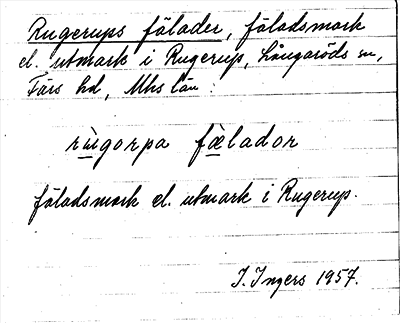 Rugerups fälader, fäladsmark
el. utmark i Rugerup, Långaröds sn,
Färs hd, Mhs län:
rùgorpa fælador
fäladsmark el. utmark i Rugerup.
I. Ingers 1957.